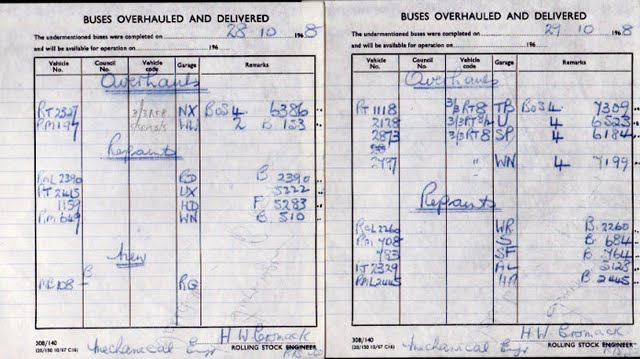 BUSES OVERHAULED AND DELIVERED
The undermentioned buses were completed on 28 10 196 8
and will be available for operation on 196
Vehicle No. Council No. Vehicle code Garage Remarks
Overhauls
RT 2527 3/3RT8 NX BOS 4 6386
RM 1197 WW 2 B 153
Repaints
RML 2390 RD B 2390
RT 2415 UX 5222
1159 HD F 5283
RM 649 WN B 510
New
MB 108 B RG
308/140
(20/150 10/67 C16)
H W Cromack
Mechanical Engr ROLLING STOCK ENGINEER
BUSES OVERHAULED AND DELIVERED
The undermentioned buses were completed on 29 10 196 8
and will be available for operation on 196
Vehicle No. Council No. Vehicle code Garage Remarks
Overhauls
RT 1118 3/3RT8 TB BOS 4 7309
2128 U 4 6523
2873 3/3RT8 SP 4 6184
2797 " WN 4 7199
Repaints
RML 2260 WR B 2260
RM 708 S B 684
783 SF B 764
RT 2329 HL 3128
RML 2445 HA B 2445
308/140
(20/150 10/67 C16)
H W Cromack
Mechanical Engr ROLLING STOCK ENGINEER